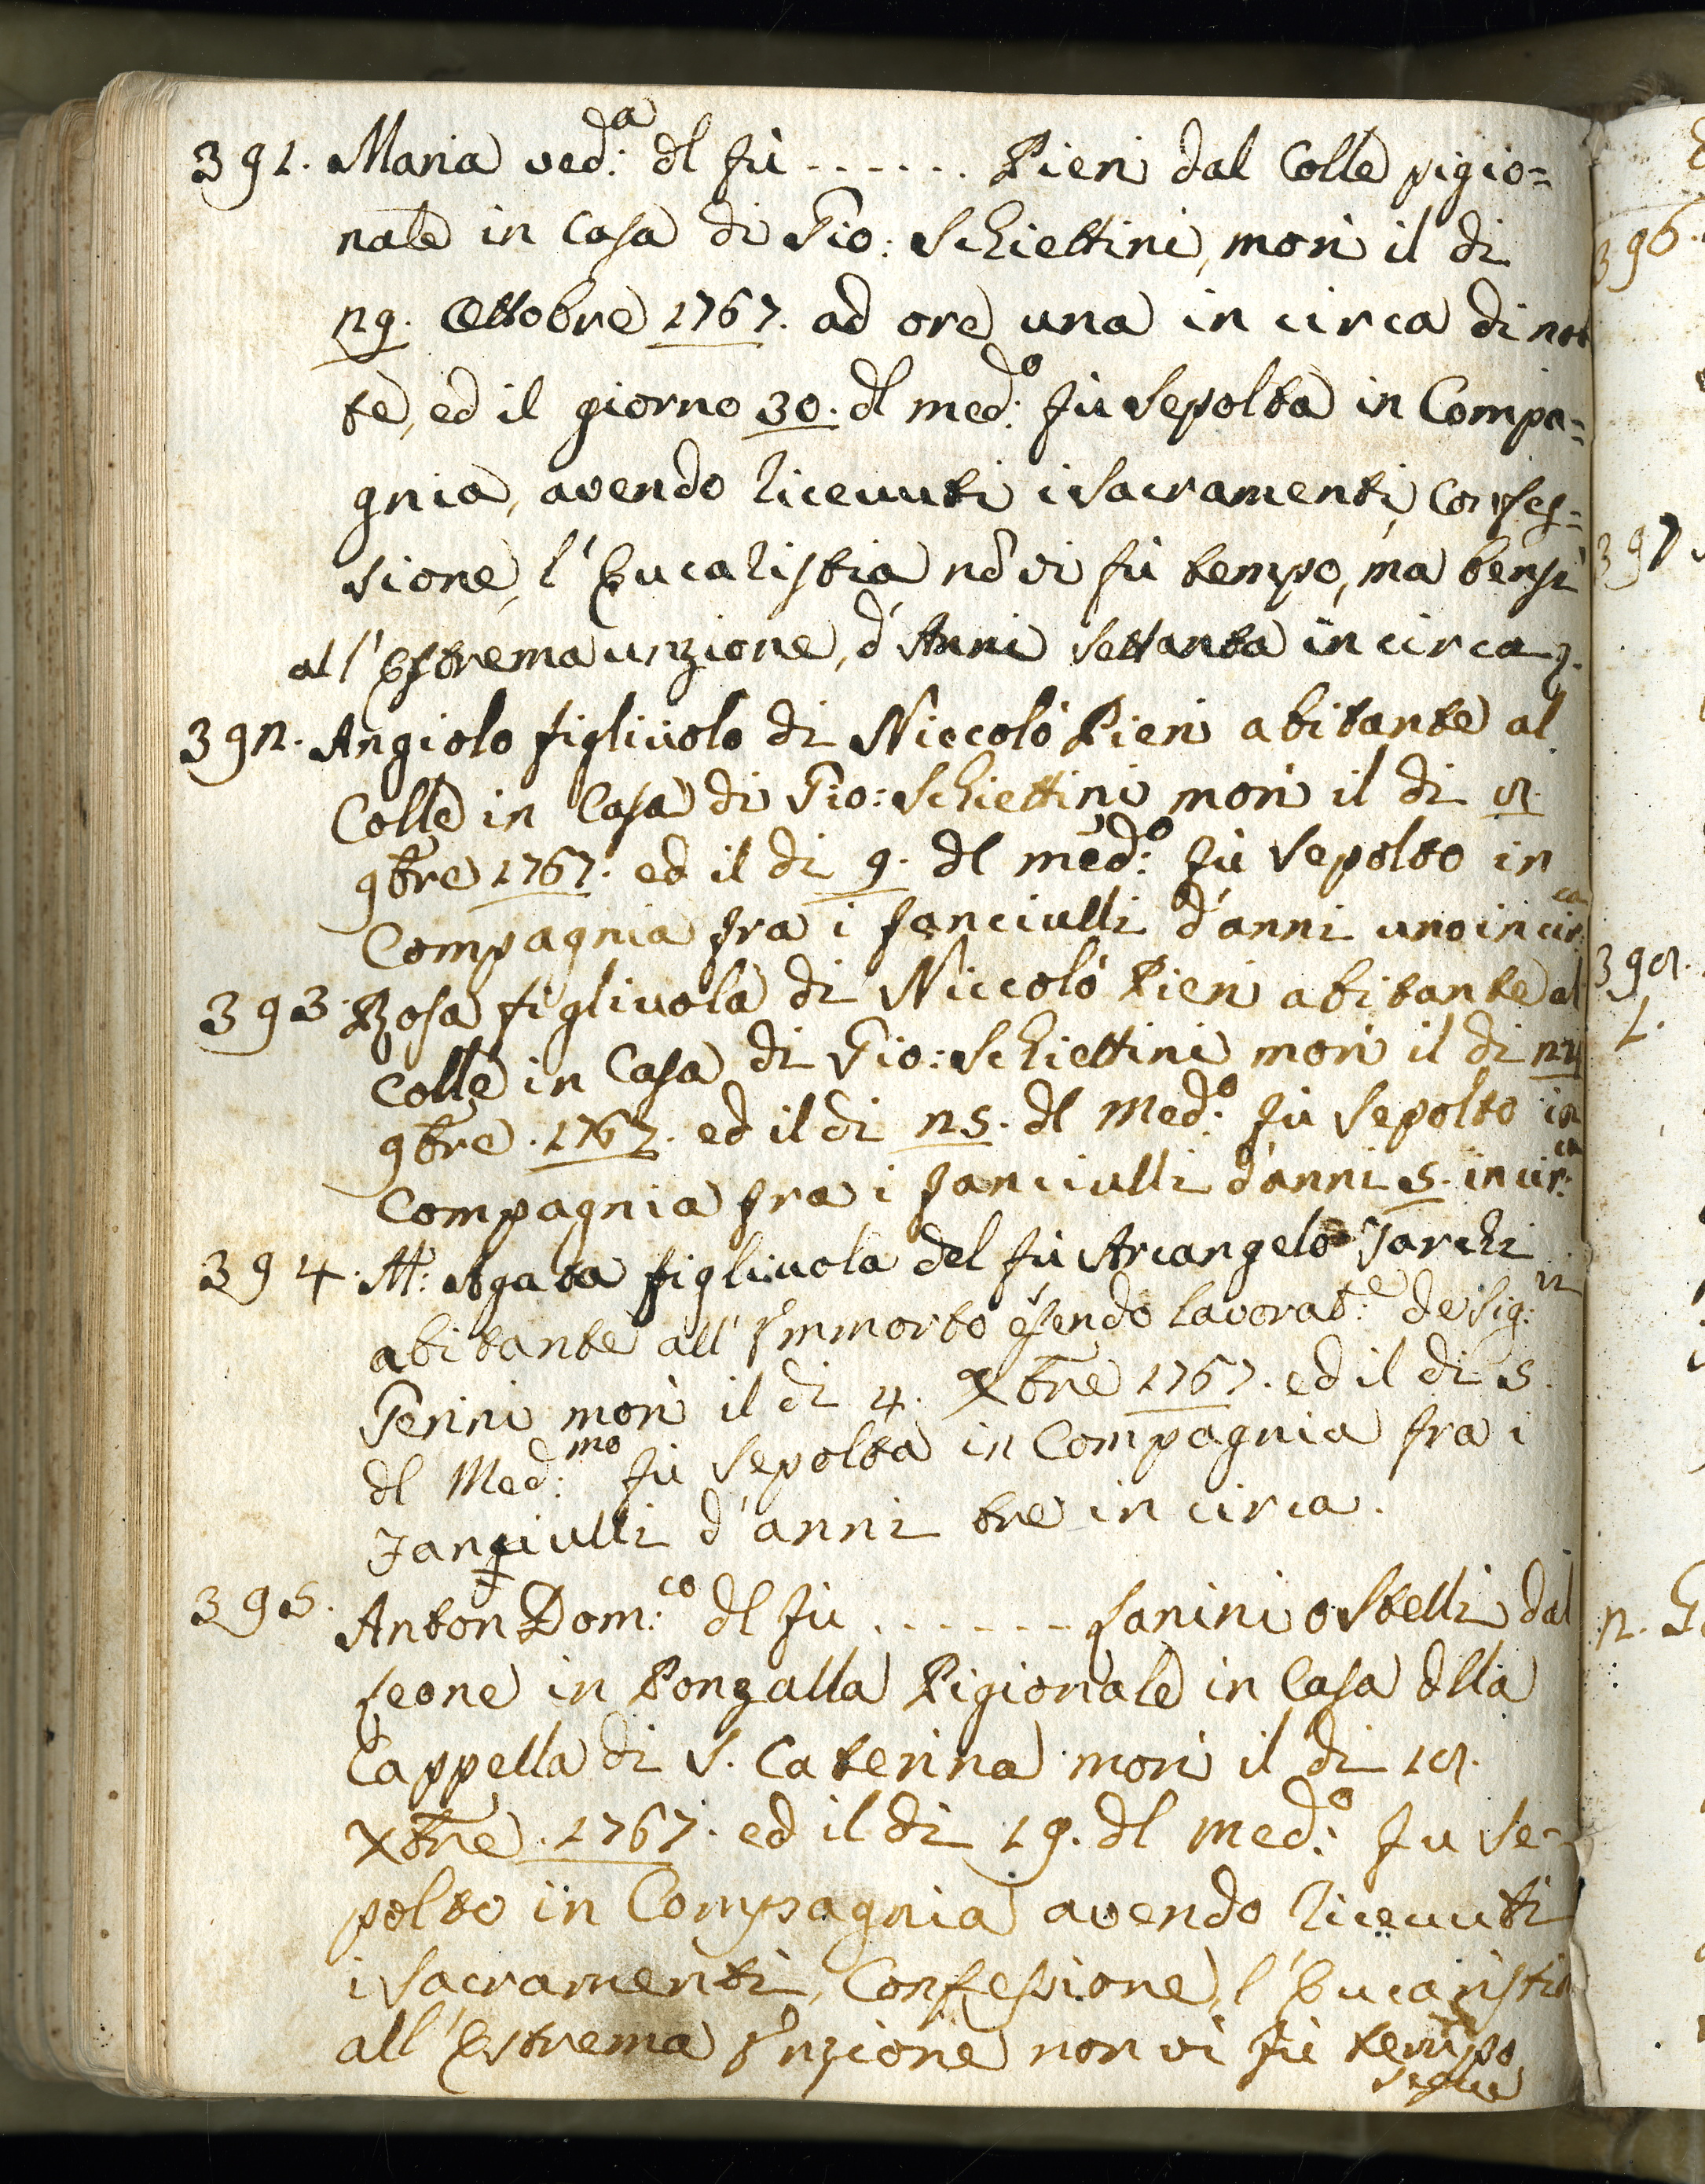 391. Maria ved:a dl fù ...... Pieri dal Colle pigio=
nale in Casa di Gio: Schiettini, morì il di
29. Ottobre 1767. ad ore una in circa di not
te, ed il giorno 30. dl med:o fù sepolta in Compa=
gnia, avendo riceuuti i sacramenti, Confes=
sione, l'Eucaristia nō vi fù tempo, ma bensì
all'Estrema unzione, d'Anni settanta in circa.
392. Angiolo figliuolo di Niccolò Pieri abitante al
Colle in Casa di Gio: Schiettini morì il di 8.
9bre 1767. ed il di 9. dl med:o fù sepolto in
Compagnia fra i fanciulli d'anni uno in cir:ca
393. Rosa figliuola di Niccolò Pieri abitante al
Colle in Casa di Gio: Schiettini morì il di 24
9bre. 1767. ed il di 25. dl Med:o fù sepolto in
Compagnia fra i fanciulli d'anni 5. in cir:ca
394. M: Agata figliuola del fù Arcangelo Tarchi
abitante all' Immorto essendo lavorat:e de Sig:ri
Gerini morì il di 4. Xbre 1767. ed il di 5.
dl Med:mo fù sepolta in Compagnia fra i
Fanciulli d'anni tre in circa.
395. Anton Dom:co dl fù ...... Lanini o Stelli dal
Leone in Ponzalla Pigionale in Casa dlla
Cappella di S. Caterina morì il di 18.
Xbre. 1767. ed il di 19. dl med:o fu se-
polto in Compagnia avendo riceuuti
i sacramenti, Confessione, l'Eucaristia
all'Estrema Unzione non vi fù tempo
segue
396.
397
398.